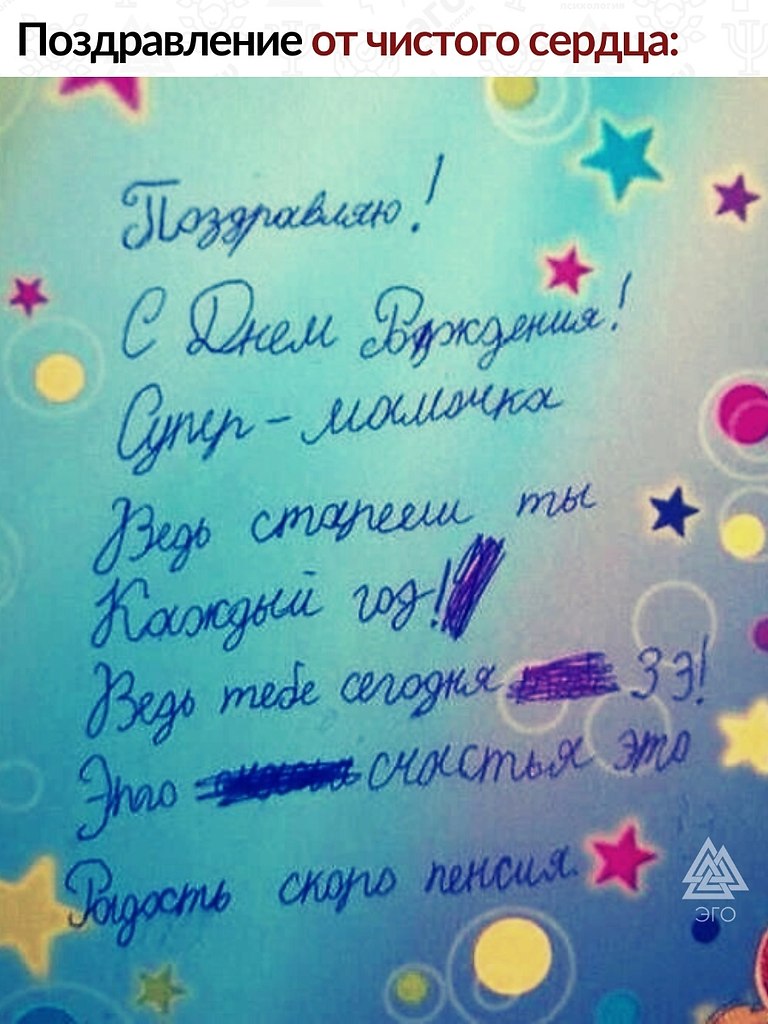 Поздравление от чистого сердца:
Поздравляю!
С Днем Рождения!
Супер-мамочка
Ведь стареешь ты
Каждый год!
Ведь тебе сегодня 33!
Это счастья это
Радость скоро пенсия.
ЭГО